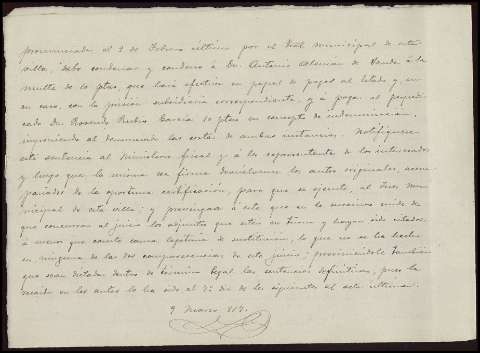 pronunciada el 2 de Febrero último por el Tral municipal de esta
villa, debo condenar y condeno á Dn. Antonio Alemán de Vauda á la
multa de 10 ptas, que hará efectiva en papel de pagos al Estado y en
su caso, con la prisión subsidiaria correspondiente, y á pagar al perjudi-
cado Dn. Rosendo Rubio García 50 ptas en concepto de indemnización,
imponiendo al denunciado las costas de ambas instancias. Notifíquese
esta sentencia al Ministerio fiscal y á los representantes de los interesados
y luego que la misma sea firme devuélvanse los autos originales, acom-
pañados de la oportuna certificación, para que se ejecute, al Juez mu-
nicipal de esta villa; y prevéngase á este que en lo sucesivo cuide de
que concurran al juicio los adjuntos que estén en turno y hayan sido citados,
á menos que exista causa legítima de sustitución, lo que no se ha hecho
en ninguna de las dos comparecencias de este juicio; previniéndole también
que sean dictadas dentro de término legal las sentencias definitivas, pues la
recaída en los autos lo ha sido al 3er día de los siguientes al acto último.
9 Marzo 917.